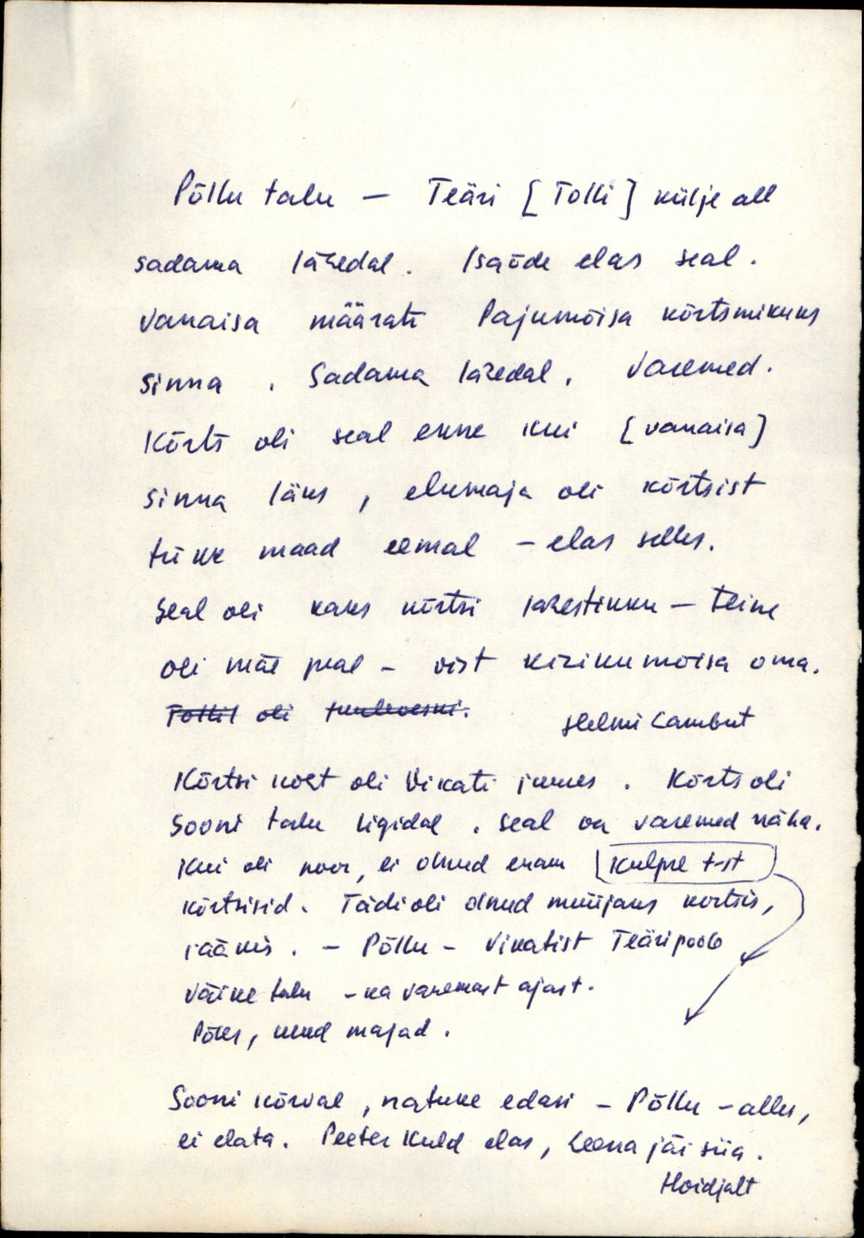 Põllu talu — Teäri [Tolli] külje all
sadama lähedal. Isaõde elas seal.
Vanaisa määrati Pajumõisa kõrtsmikuks
sinna. Sadama lähedal. Varemed.
Kõrts oli seal enne kui [vanaisa]
sinna läks, elumaja oli kõrtsist
tükk maad eemal – elas selles.
Seal oli kaks kõrtsi lähestikku – teine
oli mäe peal – vist kirikumõisa oma.
Tollil oli tuuleveski.
Helmi Lambut
Kõrtsi koht oli Vikati juures. Kõrts oli
Sooni talu ligidal. Seal on varemed näha.
Kui oli noor, ei olnud enam
kõrtsisid. Tädi oli olnud müüjaks kõrtsis,
– Põllu – Vikatist Teäri pool
väike talu – ka varemast ajast.
Põles, uued majad.
Sooni kõrval, natuke edasi – Põllu – alles,
ei elata. Peeter Kuld elas, Leena jäi siia.
Hoidjalt